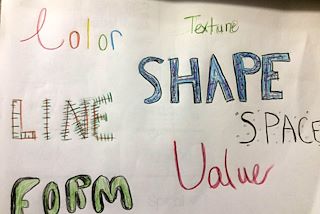 Color
Texture
SHAPE
LINE
SPACE
Value
FORM